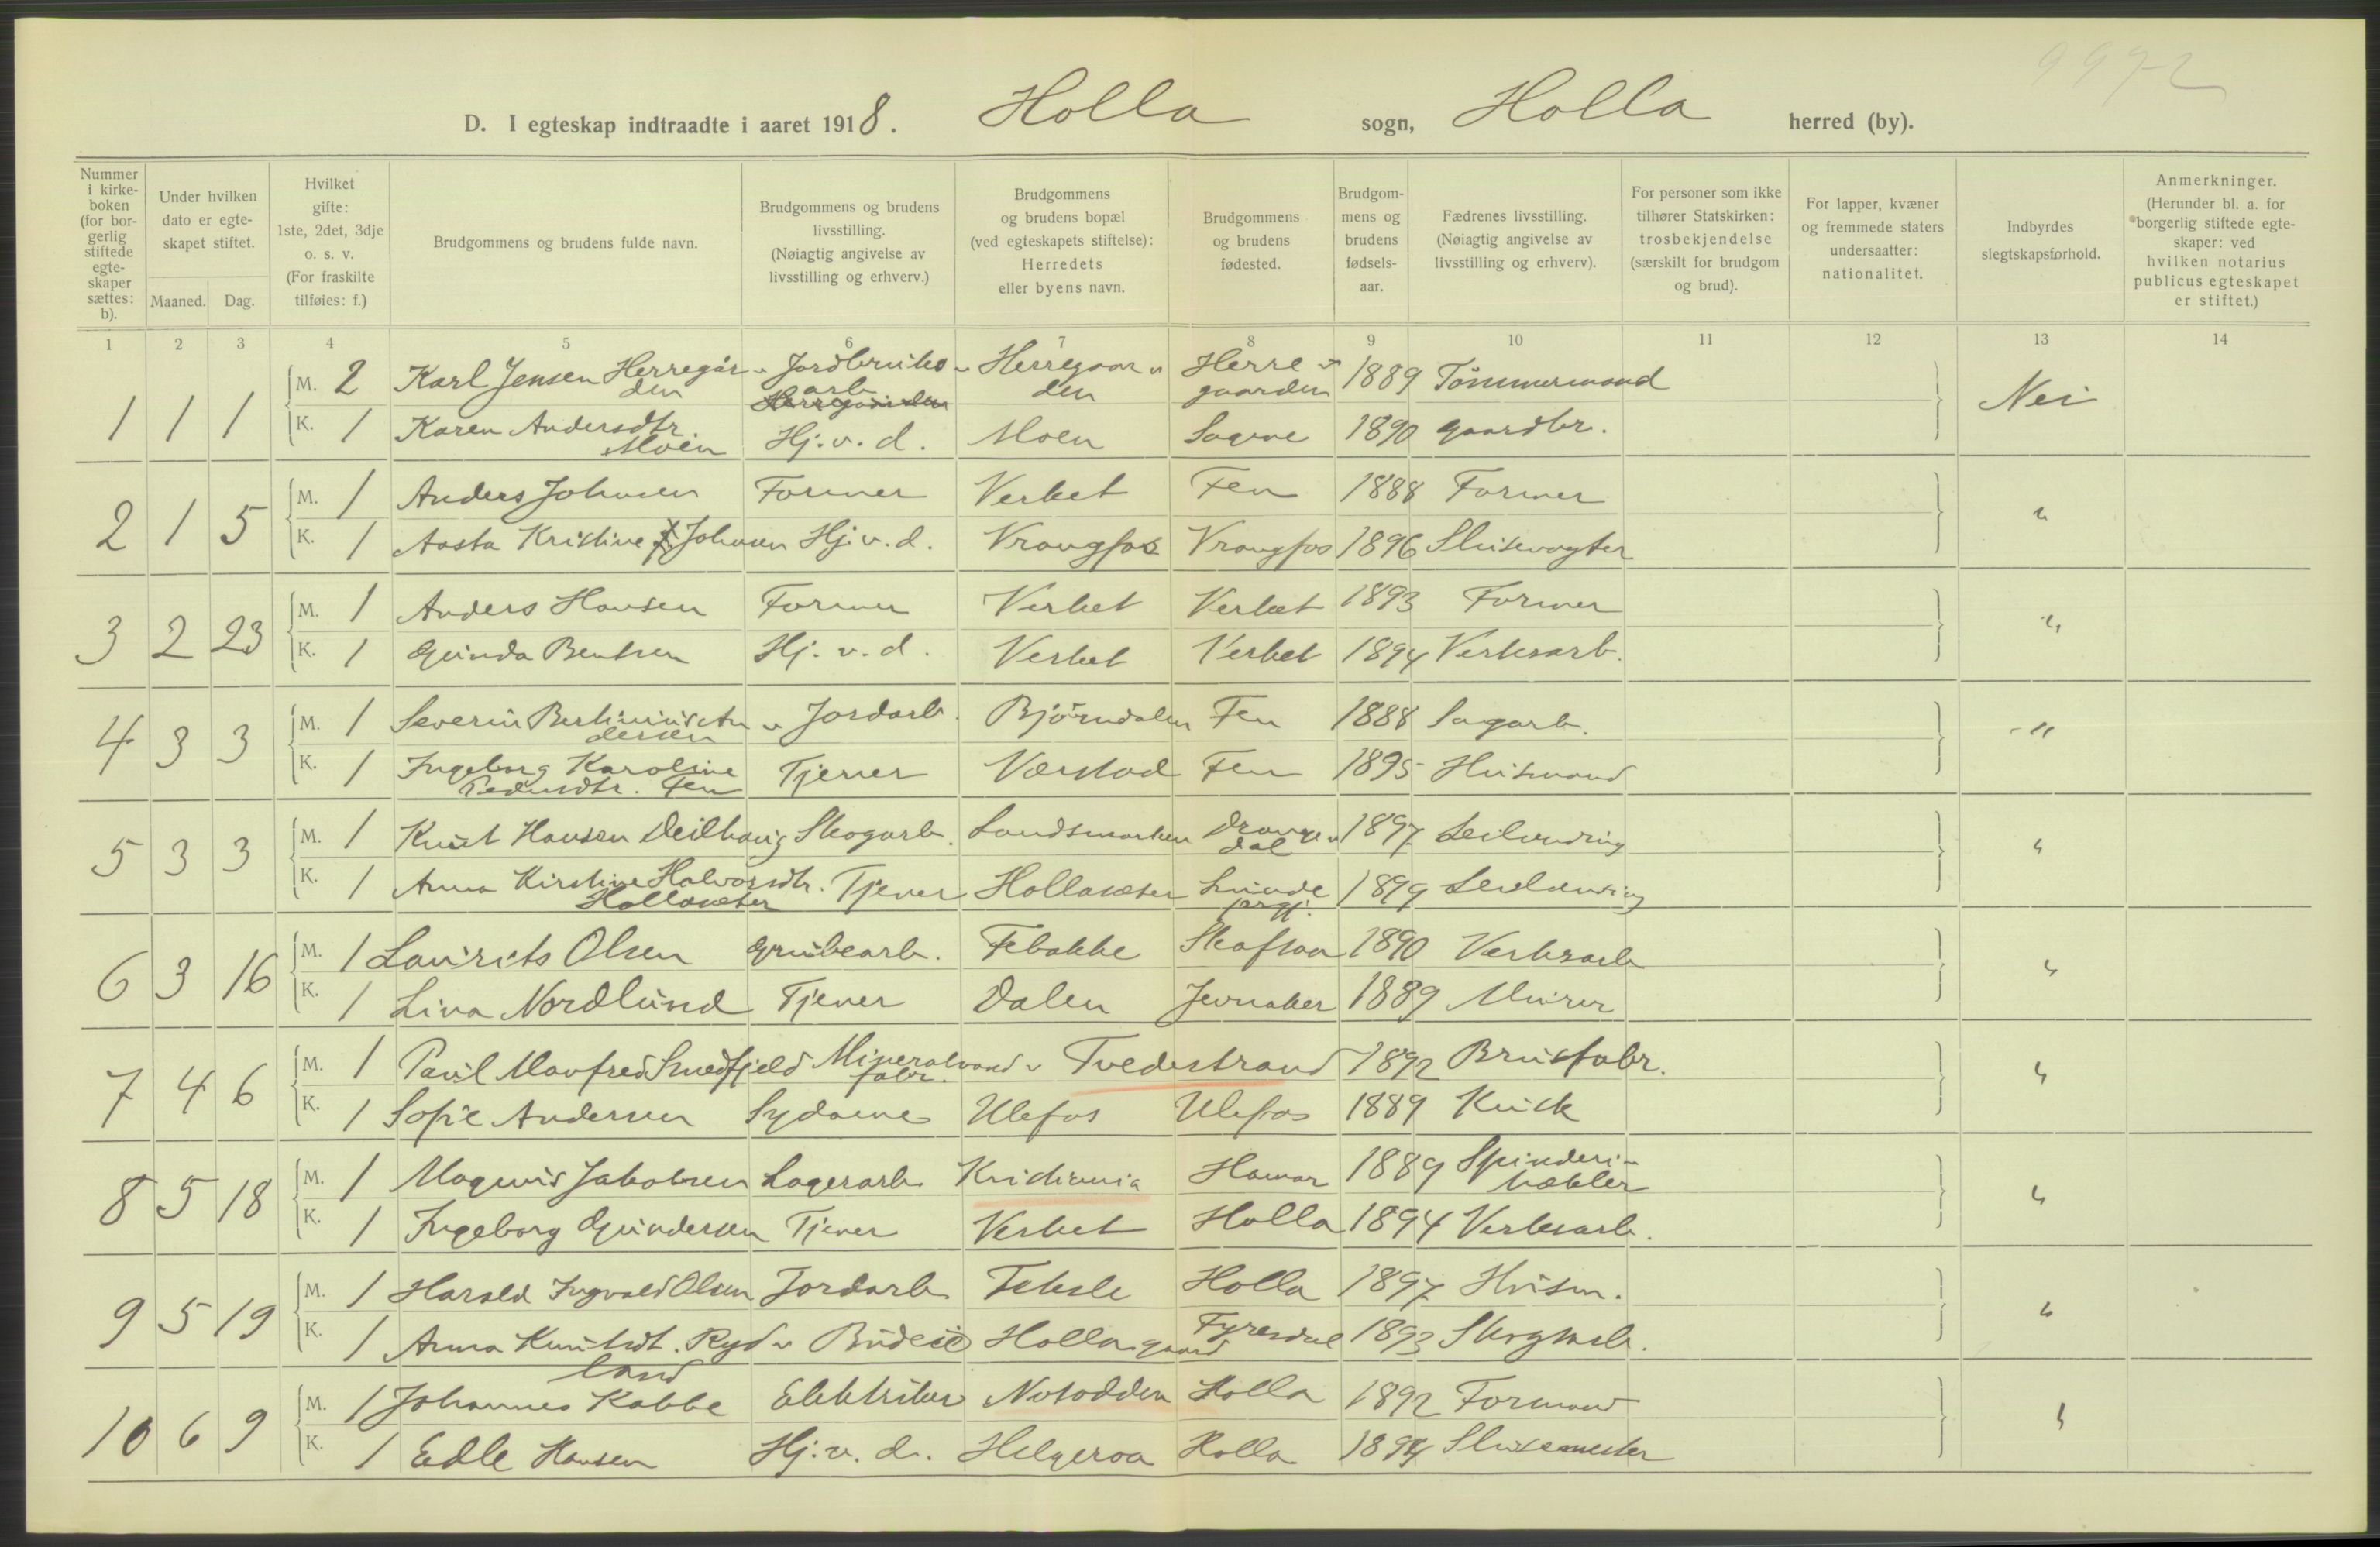 D. I egteskap indtraadte i aaret 1918. Holla sogn, Holla herred (by).
Nummer i kirkeboken (for borgerlig stiftede egteskaper sættes: b).
Under hvilken dato er egteskapet stiftet.
Maaned. Dag.
Hvilket gifte: 1ste, 2det, 3dje o. s. v. (For fraskilte tilføies: f.)
Brudgommens og brudens fulde navn.
Brudgommens og brudens livsstilling. (Nøiagtig angivelse av livsstilling og erhverv.)
Brudgommens og brudens bopæl (ved egteskapets stiftelse): Herredets eller byens navn.
Brudgommens og brudens fødested.
Brudgommens og brudens fødselsaar.
Fædrenes livsstilling. (Nøiagtig angivelse av livsstilling og erhverv).
For personer som ikke tilhører Statskirken: trosbekjendelse (særskilt for brudgom og brud).
For lapper, kvæner og fremmede staters undersaatter: nationalitet.
Indbyrdes slegtskapsforhold.
Anmerkninger. (Herunder bl. a. for borgerlig stiftede egteskaper: ved hvilken notarius publicus egteskapet er stiftet.)
1 2 3 4 5 6 7 8 9 10 11 12 13 14
1 1 1 M. 2 Karl Jensen Herregården Jordbruks arb Herregaarden Herregaarden 1889 Tömmermand Nei
K. 1 Karen Andersdtr. Moen Hj. v. d. Moen Sagene 1890 gaardbr.
2 1 5 M. 1 Anders Johnsen Former Verket Fen 1888 Former "
K. 1 Aasta Kristine Johnsen Hj. v. d. Vrangfos Vrangfos 1896 Slusevogter
3 2 23 M. 1 Anders Hansen Former Verket Verket 1893 Former "
K. 1 Gunda Bentsen Hj. v. d. Verket Verket 1894 Verksarb.
4 3 3 M. 1 Severin Bertinius Andersen Jordarb. Björndalen Fen 1888 Sagarb. "
K. 1 Ingeborg Karoline Pedersdtr. Fen Tjener Værstad Fen 1895 Husmand
5 3 3 M. 1 Knut Hansen Deilhaug Skogarb. Landsmarken Drangedal 1897 Leilending "
K. 1 Anna Kirstine Halvorsdtr. Hollasæter Tjener Hollasæter Lunde prgj. 1899 Leilending
6 3 16 M. 1 Laurits Olsen Grubearb. Febakke Skafsaa 1890 Verksarb "
K. 1 Lina Nordlund Tjener Dalen Jevnaker 1889 Murer
7 4 6 M. 1 Paul Manfred Smedfjeld Mineralvandfabr. Tvedestrand 1892 Brusfabr. "
K. 1 Sofie Andersen Sydame Ulefos Ulefos 1889 Kusk
8 5 18 M. 1 Magnus Jakobsen Lagerarb. Kristiania Hamar 1889 Spinderi- "
K. 1 Ingeborg Gundersen Tjener Verket Holla 1894 Verksarb.
9 5 19 M. 1 Harald Ingvald Olsen Jordarb. Teksle Holla 1897 Husm. "
K. 1 Anna Knutsdt. Rydland Budeie Hollagaard Fyresdal 1893 Skogarb.
10 6 9 M. 1 Johannes Kabbe Elektriker Notodden Holla 1892 Formand "
K. 1 Edle Hansen Hj. v. d. Helgeroa Holla 1894 Slusemester